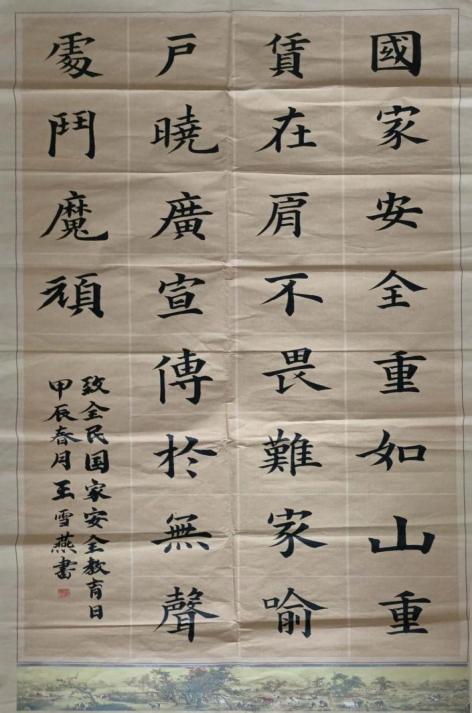 國家安全重如山重
賃在肩不畏難家喻
戶曉廣宣傳於無聲
處鬥魔頑
致全民国家安全教育日
甲辰春月王雪燕書